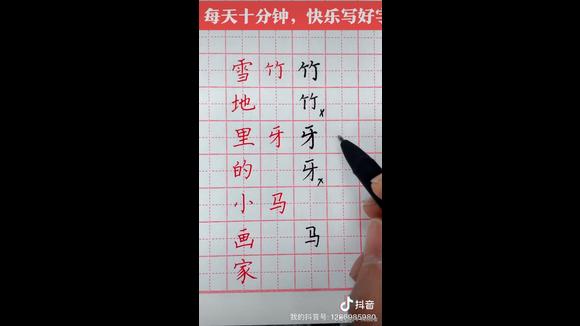 每天十分钟，快乐写好字
雪地里的小画家
竹牙马
竹竹x牙牙x马
抖音
我的抖音号: 1268985980